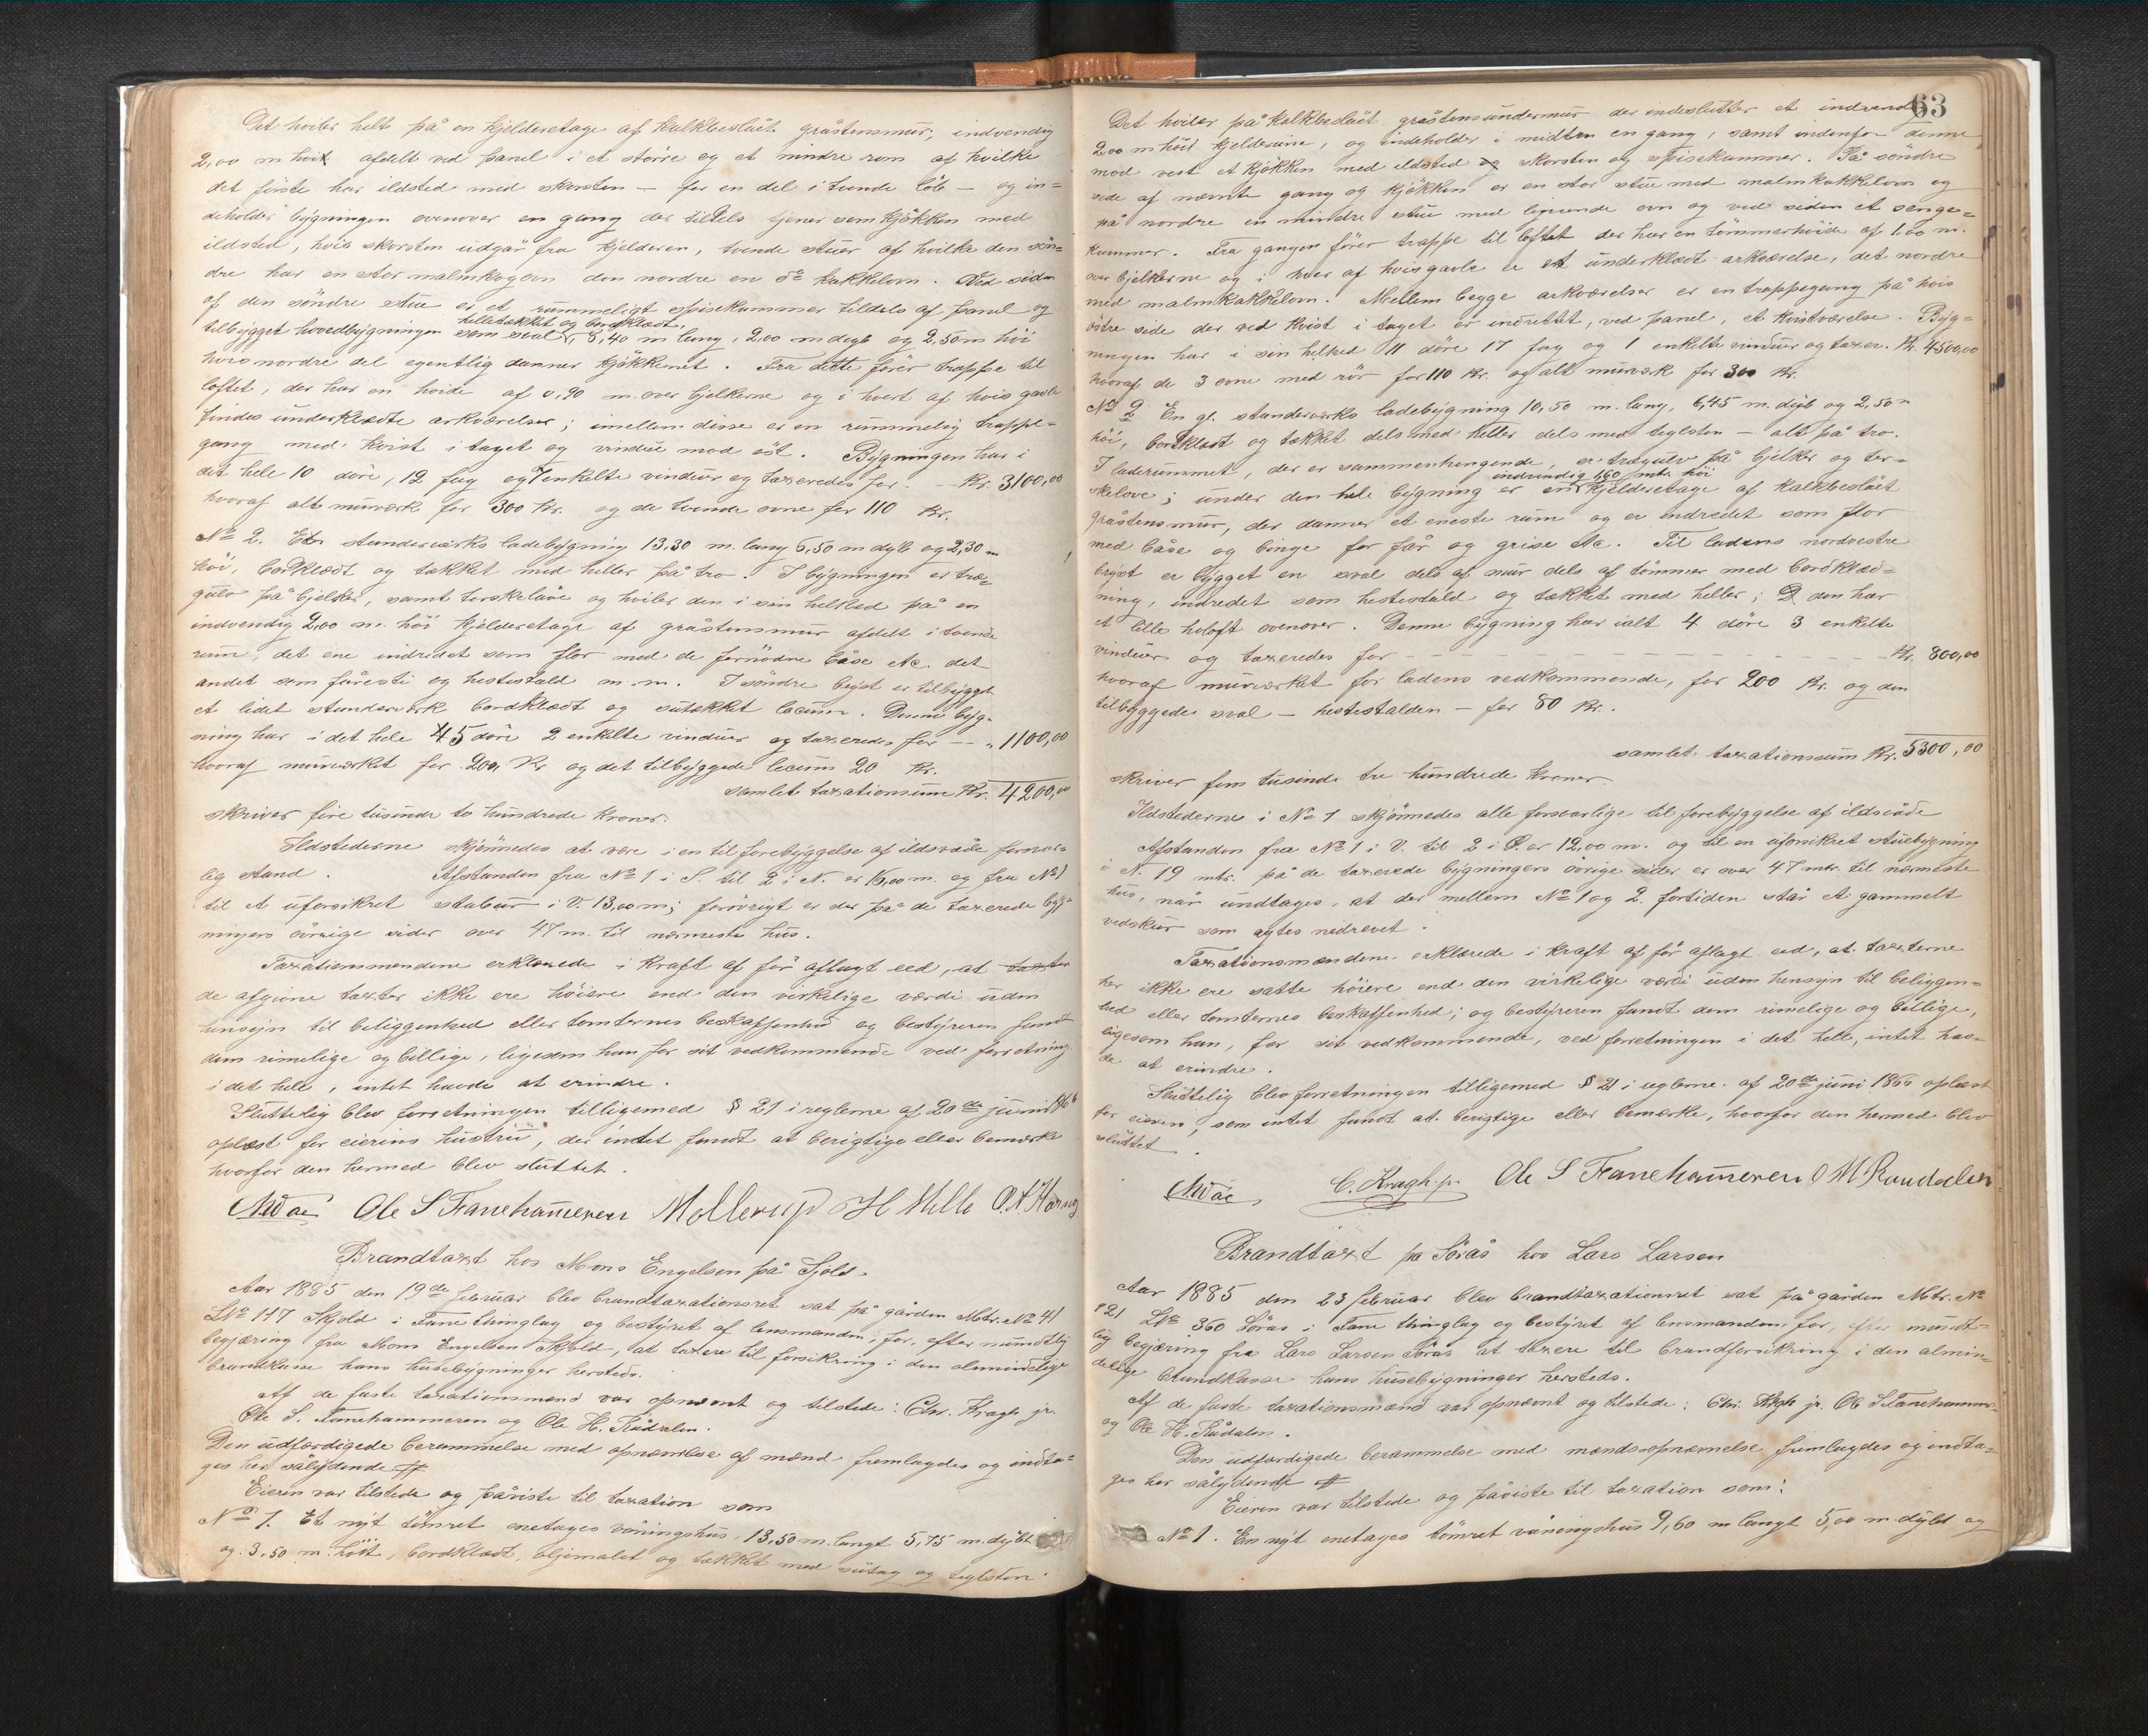 Det hviler helt på en kjelderetage af kalkbeslået gråstensmur, indvendig
2,00 m høit afdelt ved panel i et större og et mindre rum af hvilke
det förste har ildsted med skorsten — for en del i tvende löb — og in=
deholder bygningen ovenover en gang der tildels tjener som kjökken med
ildsted, hvis skorsten udgår fra kjelderen, tvende stuer af hvilke den sön=
dre har en stor malmkogovn den nordre en do kakkelovn. Ved siden
af den söndre stue er et rummeligt spisekammer tildels af panel og
tilletækket og bordklædt,
tilbygget hovedbygningen som sval, 8,40 m lang, 2,00 m dyb og 2,50 m höi
hvis nordre del egentlig danner kjökkenet. Fra dette förer trappe til
loftet, der har en höide af 0,90 m. over bjelkerne og i hvert af hvis gavle
findes underklædte arkværelser; imellem disse er en rummelig trappe=
gang med kvist i taget og vindue mod öst. Bygningen har i
det hele 10 döre, 12 fag og 7 enkelte vinduer og taxeredes for — Kr. 3100,00
hvoraf alt murværk for 300 Kr. og de tvende ovne for 110 Kr.
No 2. En standerværks ladebygning 13,30 m. lang 6,50 m dyb og 2,30 m
höi, bordklædt og tækket med heller på tro. I bygningen er træ=
gulv på bjelker, samt torskelåve og hviler den i sin helhed på en
indvendig 2,00 m. höi kjelderetage af gråstensmur afdelt i tvende
rum, det ene indredet som flor med de fornödne båse etc. det
andet som fåresti og hestestald m. m. I söndre bryst er tilbygget
et lidet standerværk bordklædt og utækket locum. Denne byg=
ning har i det hele 5 döre 2 enkelte vinduer og taxeredes for — „ 1100,00
hvoraf murværket for 200 Kr og det tilbyggede locum 20 Kr.
samlet taxationssum Kr. 4200,00
skriver fire tusinde to hundrede Kroner.
Ildstederne skjönnedes at være i en til forebyggelse af ildsvåde forsvar=
lig stand. Afstanden fra No 1 i S. til 2 i N. er 16,00 m. og fra No 1
til et uforsikret stabur i V. 13,00 m; forövrigt er der på de taxerede byg=
ningers övrige sider over 47 m. til nærmeste hus.
Taxationsmændene erklærede i kraft af för aflagt eed, at taxter
de afgivne taxter ikke ere höiere end den virkelige værdi uden
hensyn til beliggenhed eller tomternes beskaffenhed og bestyreren fandt
dem rimelige og billige, ligesom han for sit vedkommende ved forretning
i det hele, intet havde at erindre.
Sluttelig blev forretningen tilligemed § 21 i reglerne af 20de juni 1866
oplæst for eierens hustru, der intet fandt at berigtige eller bemærke
hvorfor den hermed blev sluttet.
Ole S Fanehammeren Mollerup H Milde
Brandtaxt hos Mons Engelsen på Sjold.
Aar 1885 den 19de februar blev brandtaxationsret sat på gården Mtr. No 41
LNo 117 Skjold i Fane thinglag og bestyret af lensmanden, for, efter mundtlig
begjæring fra Mons Engelsen Skjold, at taxere til forsikring i den almindelige
brandkasse hans husebygninger hersteds.
Af de faste taxationsmænd var opnævnt og tilstede: Chr. Kragh jr.
Ole S. Fanehammeren og Ole H. Rådalen.
Den udfærdigede berammelse med opnævnelse af mænd fremlagdes og indta=
ges her sålydende
Eieren var tilstede og påviste til taxation som
No 1. Et nyt tömret enetages våningshus, 13,50 m. langt 5,75 m. dybt
og 3,50 m. höit, bordklædt, oljemalet og tækket med sutag og teglsten.
63
Det hviler på kalkbeslået gråstensundermur der indeslutter et indvendig
2,00 m höit kjelderrum, og indeholder i midten en gang, samt indenfor denne
mod vest et kjökken med ildsted og skorsten og spisekammer. På söndre
side af nævnte gang og kjökken er en stor stue med malmkakkelovn og
på nordre en mindre stue med lignende ovn og ved siden et senge=
kammer. Fra gangen förer trappe til loftet der har en tömmerhöide af 1.00 m.
over bjelkerne og i hver af hvis gavle er et underklædt arkværelse, det nordre
med malmkakkelovn. Mellem begge arkværelser er en trappegang på hvis
östre side der ved kvist i taget er indrettet, ved panel, et kvistværelse. Byg=
ningen har i sin helhed 11 döre 17 fag og 1 enkelte vinduer og taxer. Kr. 4500,00
hvoraf de 3 ovne med rör for 110 Kr. og alt murværk for 300 Kr.
No 2 En gl. standerværks ladebygning 10,50 m. lang, 6,45 m. dyb og 2,50 m
höi, bordklædt og tækket dels med heller dels med teglsten — alt på tro.
I laderummet, der er sammenhengende, er trægulv på bjelker og tor=
indvendig 1,60 mtr. höi
skelove; under den hele bygning er en kjelderetage af kalkbeslået
gråstensmur, der danner et eneste rum og er indredet som flor
med båse og binge for får og grise etc. Til ladens nordvestre
bryst er bygget en sval dels af mur dels af tömmer med bordklæd=
ning, indredet som hestestald og tækket med heller; den har
et lille höloft ovenover. Denne bygning har ialt 4 döre 3 enkelte
vinduer og taxeredes for — Kr. 800,00
hvoraf murværket for ladens vedkommende, for 200 Kr. og den
tilbyggede sval — hestestalden — for 80 Kr.
samlet taxationssum Kr. 5300,00
skriver fem tusinde tre hundrede kroner.
Ildstederne i No 1 skjönnedes alle forsvarlige til forebyggelse af ildsvåde
Afstanden fra No 1 i V. til 2 i Ö. er 12,00 m. og til en uforsikret stuebygning
i N. 19 mtr. på de taxerede bygningers övrige sider er over 47 mtr. til nærmeste
hus, når undtages, at der mellem No 1 og 2. fortiden står et gammelt
vedskur som agtes nedrevet.
Taxationsmændene erklærede i kraft af för aflagt eed, at taxterne
her ikke ere satte höiere end den virkelige værdi uden hensyn til beliggen=
hed eller tomternes beskaffenhed; og bestyreren fandt dem rimelige og billige,
ligesom han, for sit vedkommende, ved forretningen i det hele, intet hav=
de at erindre.
Sluttelig blev forretningen tilligemed § 21 i reglerne af 20de juni 1866 oplæst
for eieren, som intet fandt at berigtige eller bemærke, hvorfor den hermed blev
sluttet.
C. Kragh jr. Ole S Fanehammeren O M Raudalen
Brandtaxt på Sörås hos Lars Larsen
Aar 1885 den 23 februar blev brandtaxationsret sat på gården Mtr. No
121 LNo 360 Sörås i Fane thinglag og bestyret af lensmanden for, efter mundt=
lig begjæring fra Lars Larsen Sörås at taxere til brandforsikring i den almin=
delige brandkasse hans husebygninger hersteds.
Af de faste taxationsmænd var opnævnt og tilstede: Chr. Kragh jr. Ole S Fanehammer
og Ole H. Rådalen.
Den udfærdigede berammelse med mændsopnævnelse fremlagdes og indta=
ges her sålydende
Eieren var tilstede og påviste til taxation som:
No 1. En nyt enetages tömret våningshus 9,60 m langt 5,00 m. dybt og